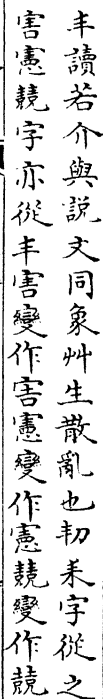 丯讀若介與說文同象艸生散亂也㓞耒字從之
害憲兢字亦從丯害變作害憲變作憲兢變作兢